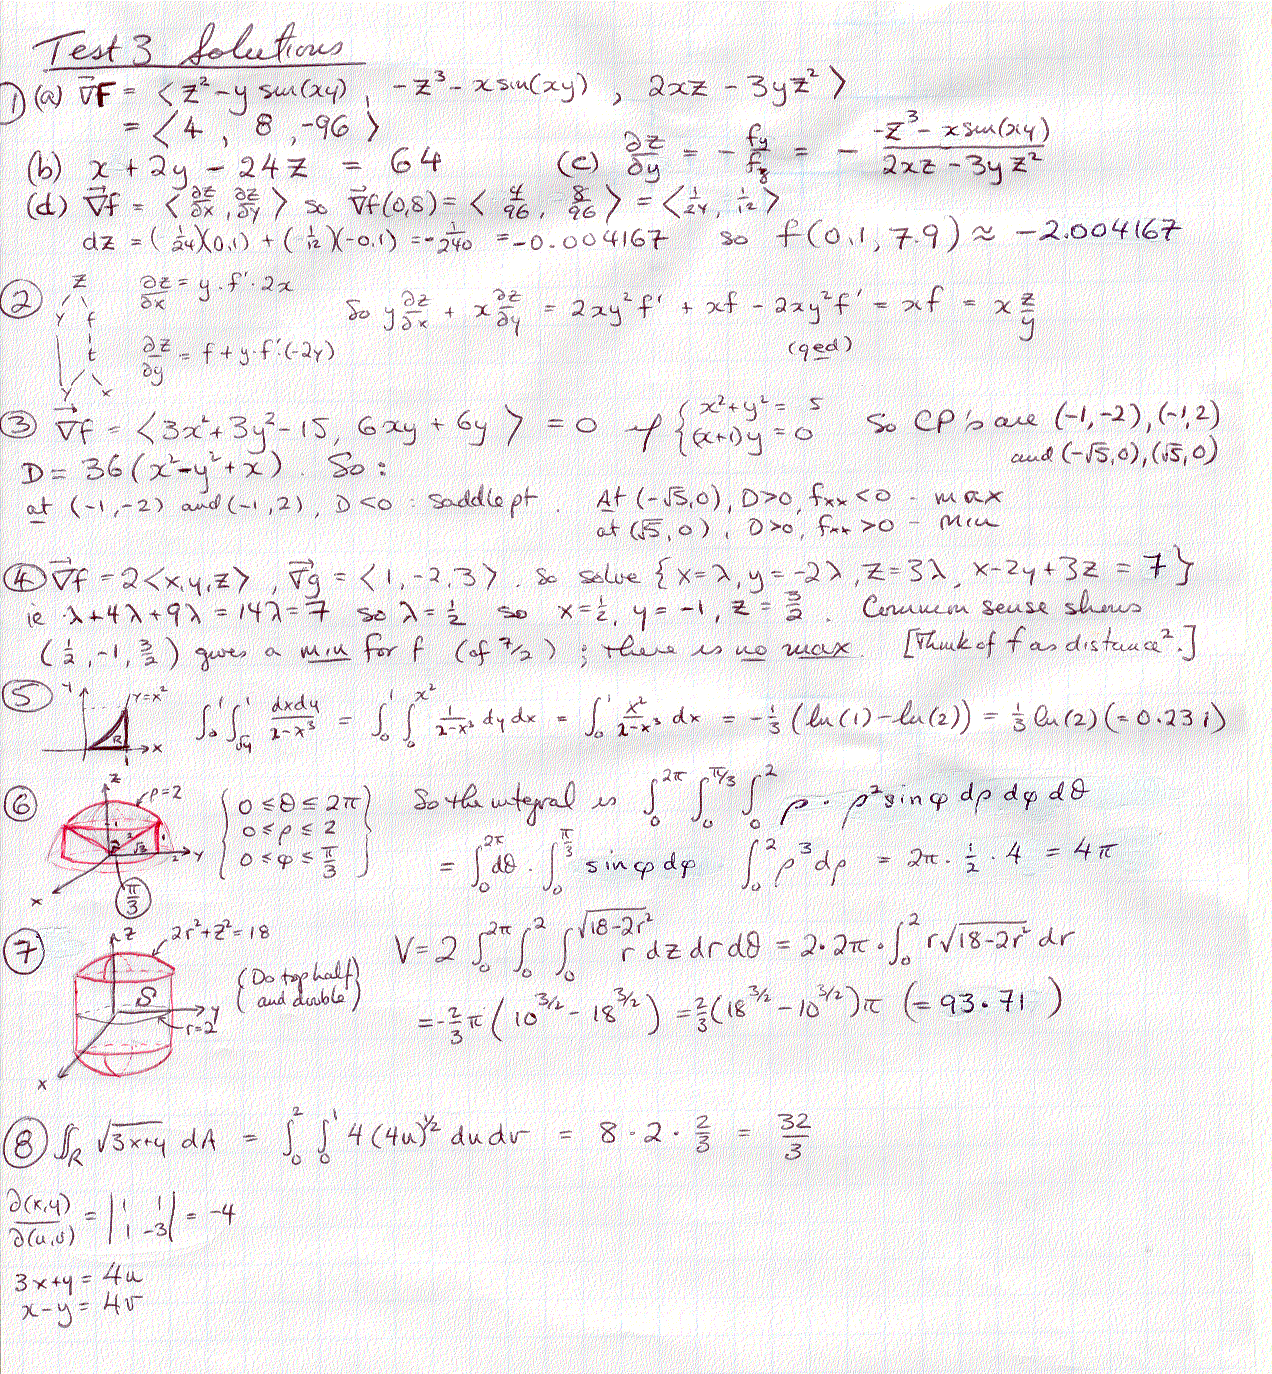 Test 3 Solutions
① (a) ∇⃗F = <z² - y sin(xy), -z³ - x sin(xy), 2xz - 3yz²>
= <4, 8, -96>
(b) x + 2y - 24z = 64 (c) ∂z/∂y = - fy/fz = - (-z³ - x sin(xy))/(2xz - 3yz²)
(d) ∇⃗f = <∂z/∂x, ∂z/∂y> so ∇⃗f(0,8) = <4/96, 8/96> = <1/24, 1/12>
dz = (1/24)(0.1) + (1/12)(-0.1) = -1/240 = -0.004167 so f(0.1, 7.9) ≈ -2.004167
② z y f t y x
∂z/∂x = y·f'·2x
So y ∂z/∂x + x ∂z/∂y = 2xy²f' + xf - 2xy²f' = xf = x z/y
(qed)
∂z/∂y = f + y·f'·(-2y)
③ ∇⃗f = <3x² + 3y² - 15, 6xy + 6y> = 0 if { x² + y² = 5 (x+1)y = 0 So CP's are (-1,-2), (-1,2)
and (-√5,0), (√5,0)
D = 36(x² - y² + x). So:
at (-1,-2) and (-1,2), D<0 : saddle pt. At (-√5,0), D>0, fxx<0 - max
at (√5,0), D>0, fxx>0 - min
④ ∇⃗f = 2<x,y,z>, ∇⃗g = <1,-2,3>. So solve {x=λ, y=-2λ, z=3λ, x-2y+3z = 7}
ie λ+4λ+9λ = 14λ = 7 so λ = 1/2 so x = 1/2, y = -1, z = 3/2. Common sense shows
(1/2, -1, 3/2) gives a min for f (of 7/2); there is no max. [Think of f as distance².]
⑤ y y=x² R x 1 ∫₀¹∫_√y¹ dxdy/(2-x³) = ∫₀¹∫₀^x² 1/(2-x³) dy dx = ∫₀¹ x²/(2-x³) dx = -1/3 (ln(1) - ln(2)) = 1/3 ln(2) (= 0.231)
⑥ z ρ=2 1 2 √3 1 2 y x π/3
{ 0 ≤ θ ≤ 2π
0 ≤ ρ ≤ 2
0 ≤ φ ≤ π/3 }
So the integral is ∫₀^2π ∫₀^π/3 ∫₀² ρ · ρ² sin φ dρ dφ dθ
= ∫₀^2π dθ · ∫₀^π/3 sin φ dφ ∫₀² ρ³ dρ = 2π · 1/2 · 4 = 4π
⑦ z 2r² + z² = 18 S y r=2 x
(Do top half
and double)
V = 2 ∫₀^2π ∫₀² ∫₀^√(18-2r²) r dz dr dθ = 2·2π·∫₀² r√(18-2r²) dr
= -2/3 π (10^3/2 - 18^3/2) = 2/3 (18^3/2 - 10^3/2)π (= 93.71)
⑧ ∬_R √(3x+y) dA = ∫₀² ∫₀¹ 4(4u)^1/2 du dv = 8 · 2 · 2/3 = 32/3
∂(x,y)/∂(u,v) = | 1 1 1 -3 | = -4
3x+y = 4u
x-y = 4v